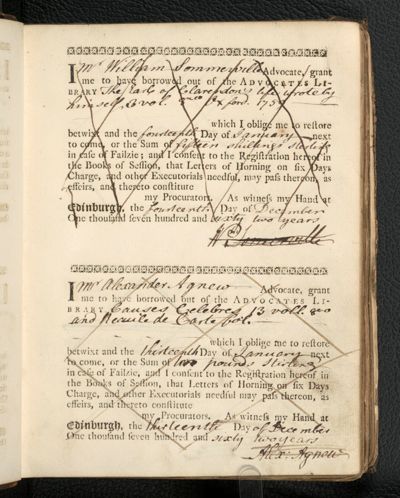 I Mr William Sommerville Advocate, grant
me to have borrowed out of the ADVOCATES LI-
BRARY The Earl of Clarendon's life wrote by
himself, 3 vol. Oxford. 1759
which I oblige me to restore
betwixt and the fourteenth Day of January next
to come, or the Sum of fifteen shillings sterling
in case of Failzie; and I consent to the Registration hereof in
the Books of Session, that Letters of Horning on six Days
Charge, and other Executorials needful, may pass thereon, as
effeirs, and thereto constitute
my Procurators. As witness my Hand at
Edinburgh, the fourteenth Day of December
One thousand seven hundred and sixty two years
W Somerville
I Mr Alexander Agnew Advocate, grant
me to have borrowed out of the ADVOCATES LI-
BRARY Causes Celebres 13 voll. 8vo
and Recuile de Carte fol.
which I oblige me to restore
betwixt and the thirteenth Day of January next
to come, or the Sum of two pounds sterling
in case of Failzie, and I consent to the Registration hereof in
the Books of Session, that Letters of Horning on six Days
Charge, and other Executorials needful may pass thereon, as
effeirs, and thereto constitute
my Procurators. As witness my Hand at
Edinburgh, the thirteenth Day of December
One thousand seven hundred and sixty two years
Alexr: Agnew